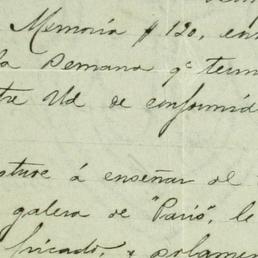 Memoria $120, en
la Semana qe term
tre Ud de conformid
stuve á enseñar al
galera de "Paris", le
fricado, y solamen